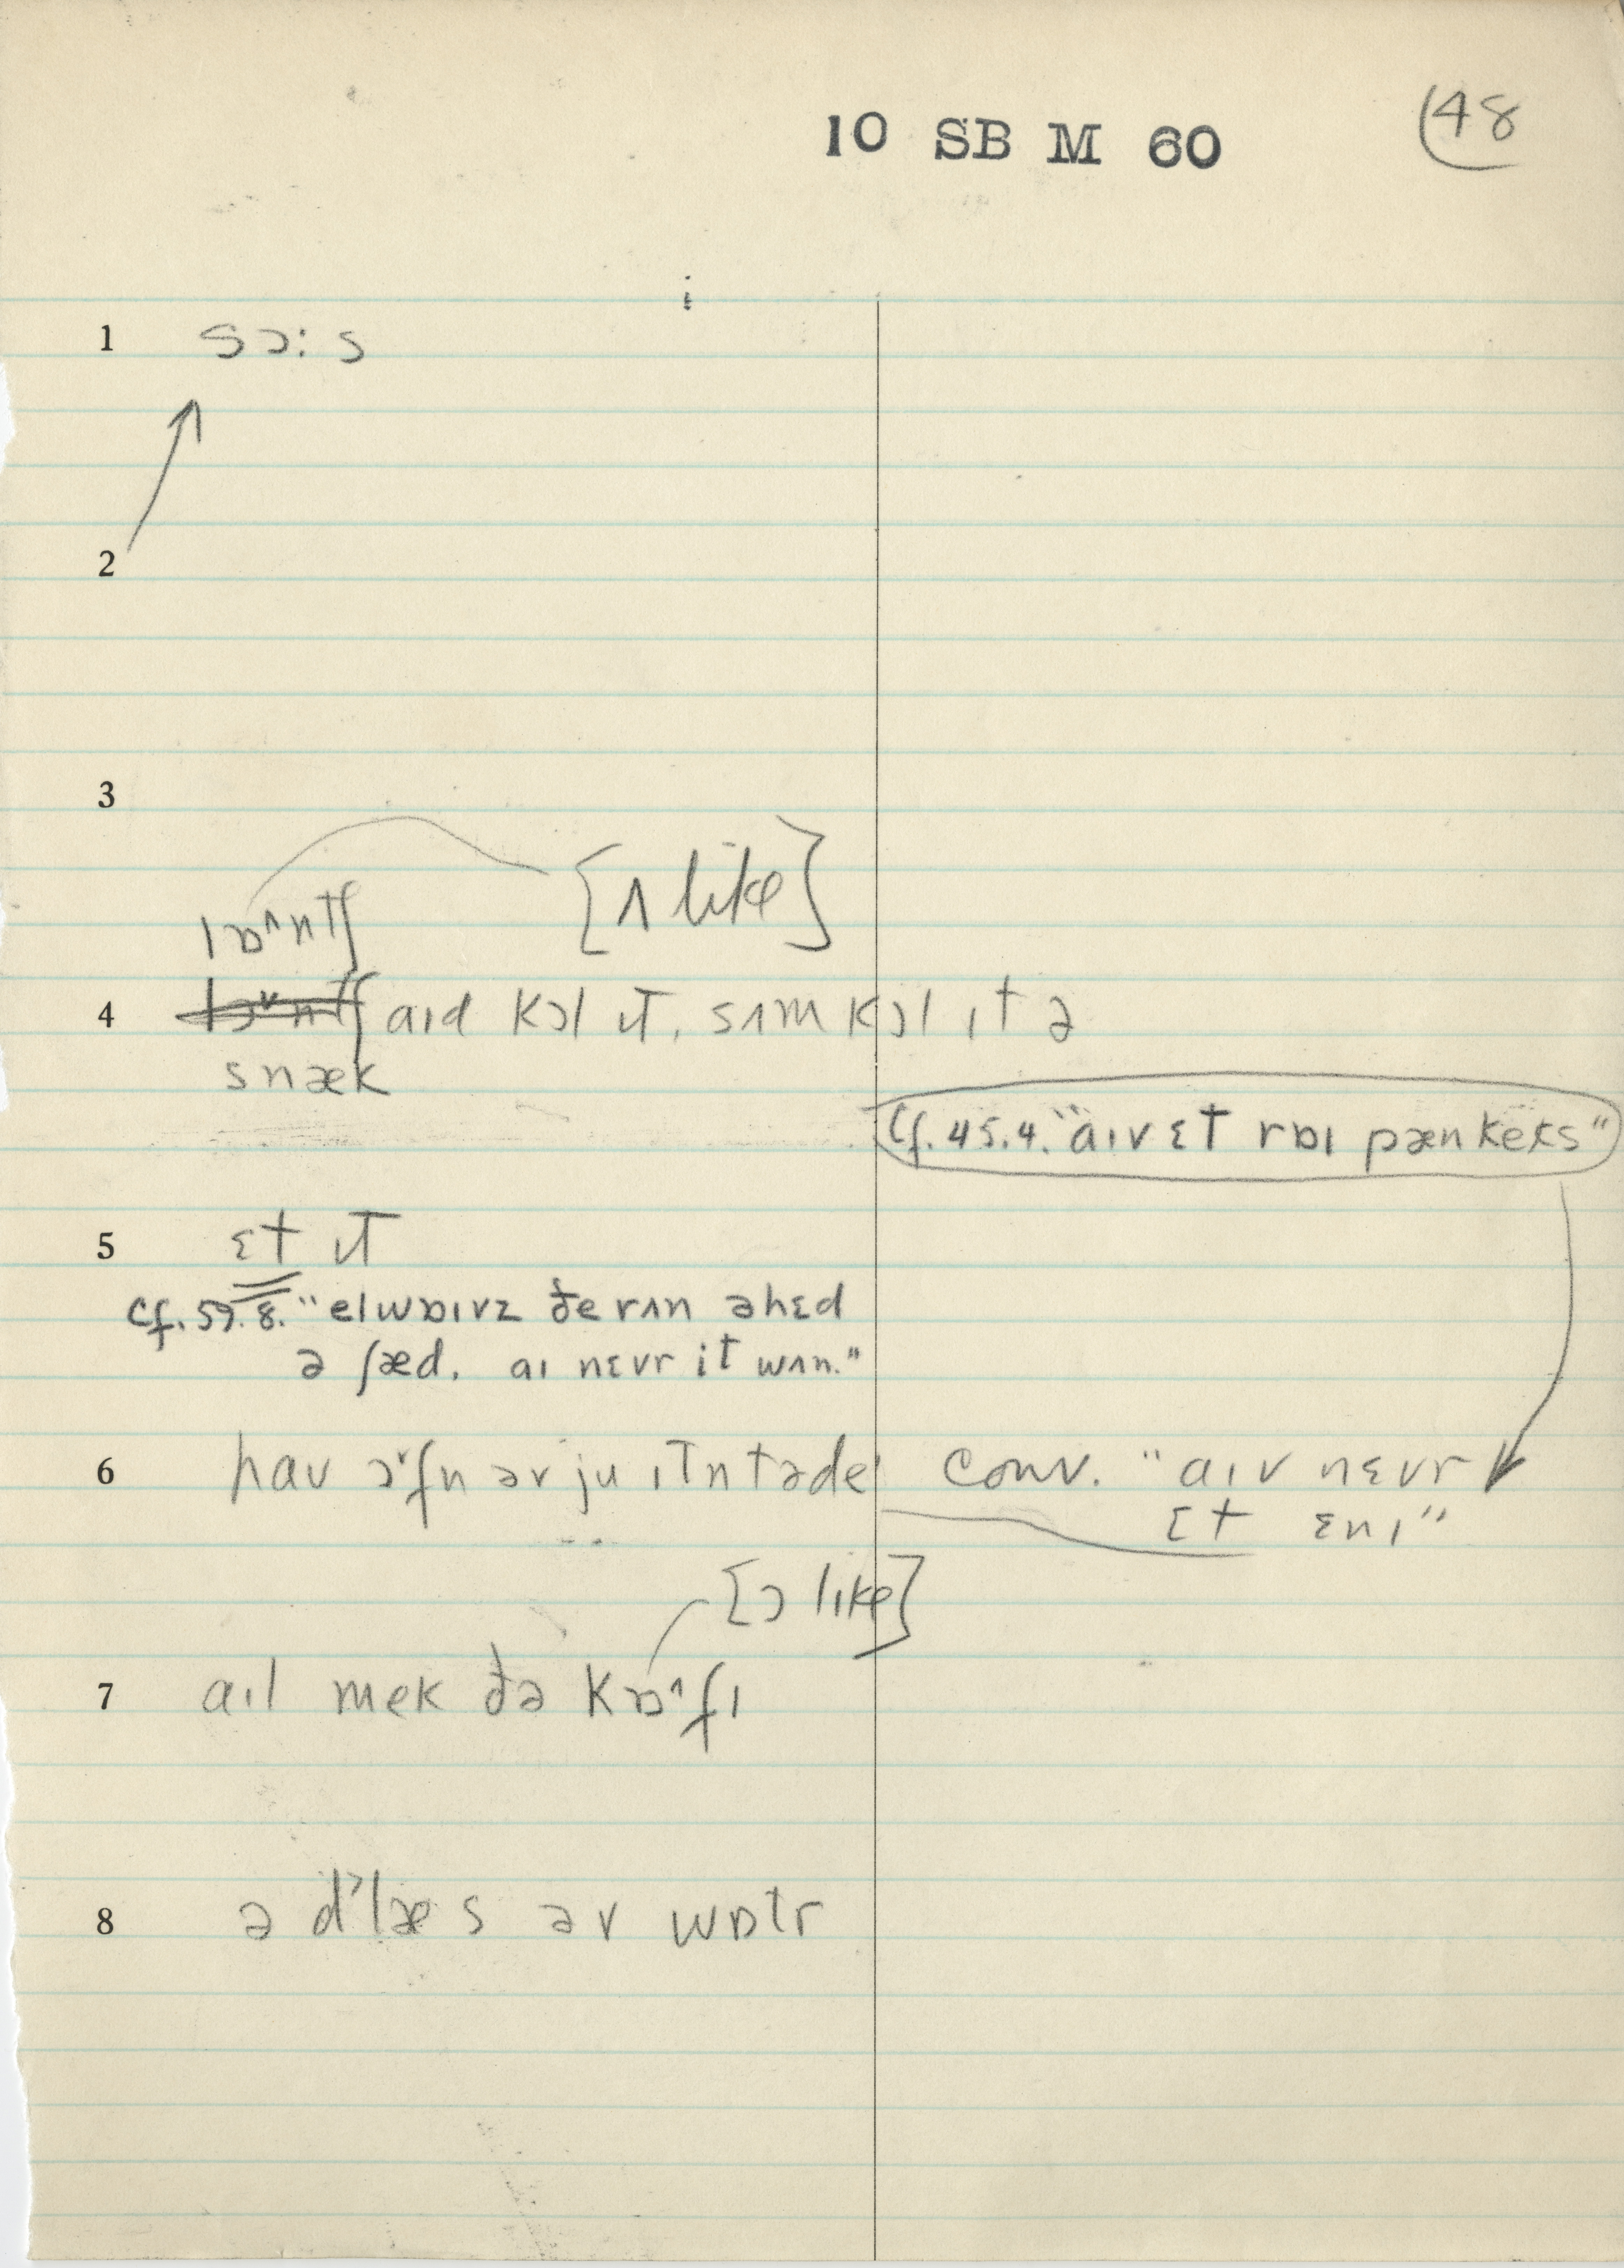 10 SB M 60
48
1 sɔ:s
2
3
[ʌ like]
lɒ^ntʃ
4 aɪd kɔl ɪt, sʌm kɔl ɪt ə
snæk
Cf. 45.4. "aɪv ɛt rɒɪ pænkeks"
5 ɛt ɪt
Cf. 59.8. "elwɒɪvz ðe rʌn əhɛd
ə ʃæd. aɪ nɛvr it wʌn."
6 haʊ ɔ˅fn əv ju ɪtn təde conv. "aɪv nɛvr
ɛt ɛnɪ"
[ɔ like]
7 aɪl mek ðə kɒ^fɪ
8 ə d˃læs əv wɒtr